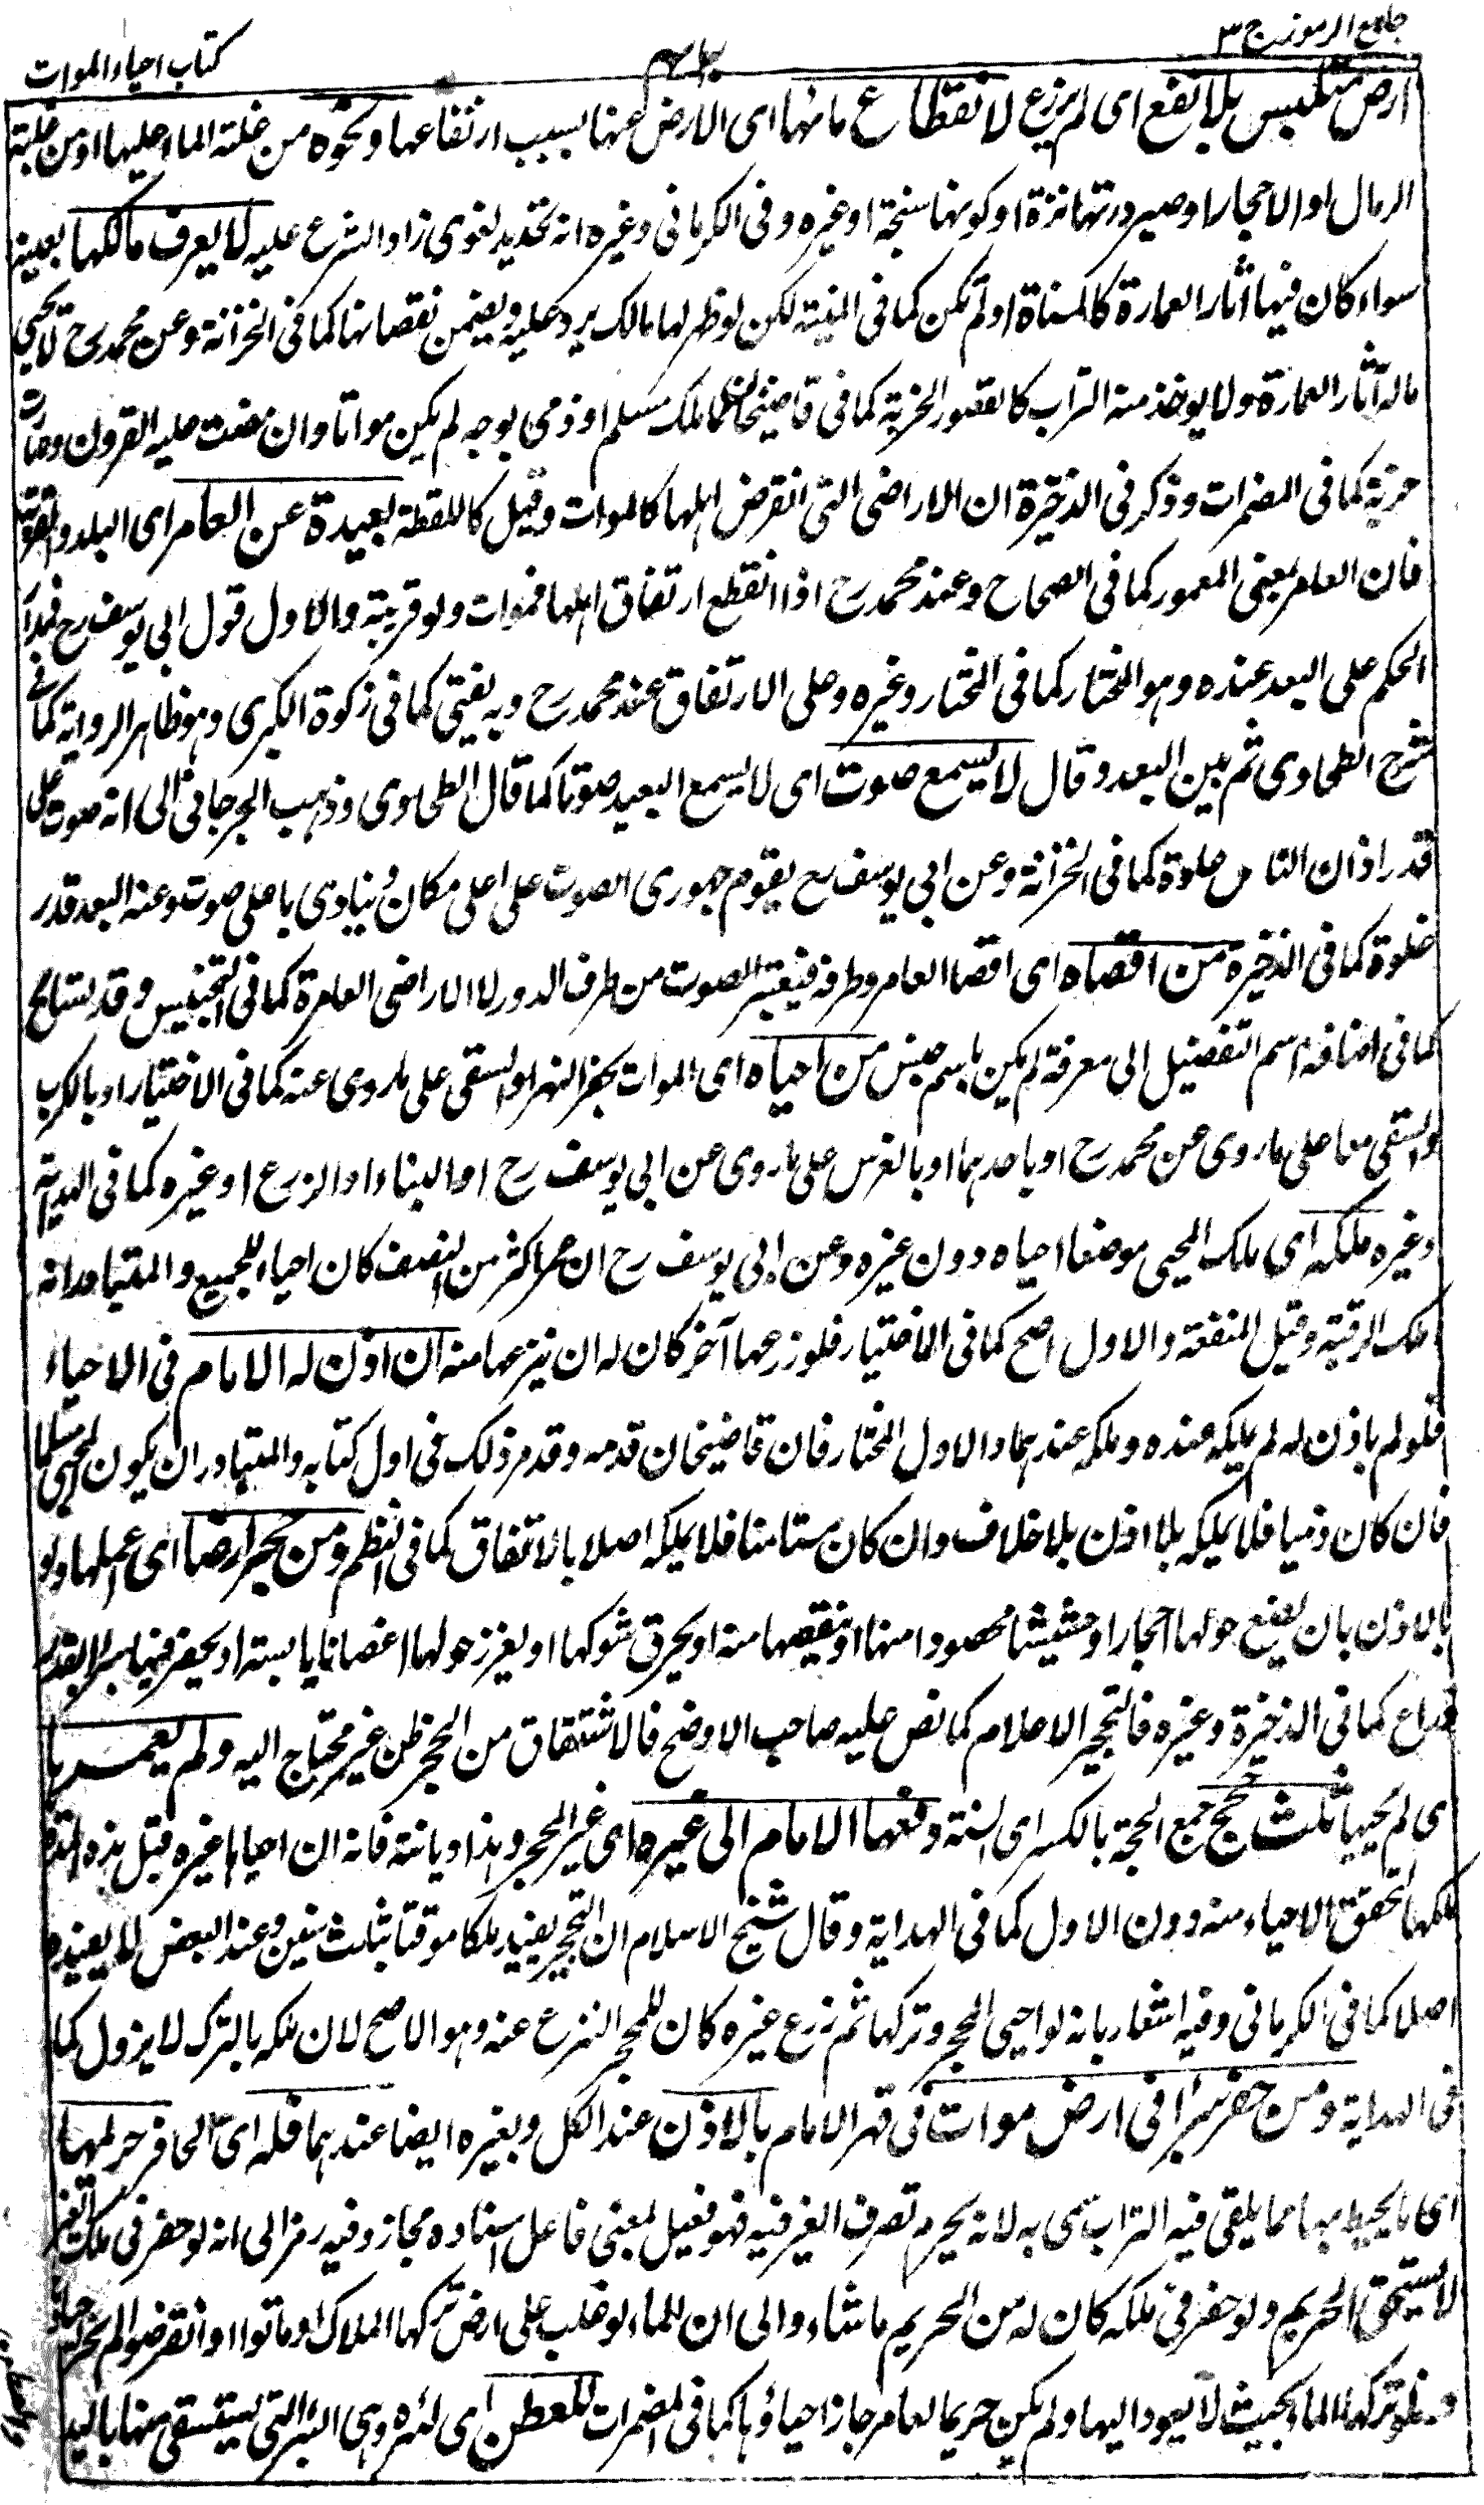 جامع الرموز ج ٣
كتاب احياء الموات
ارض متلبس بلا نفع اى لم يزرع لا نقطاع مائها اى الارض عنها بسبب ارتفاعها ونحوه من غلبة الماء عليها او من غلبة
الرمال او الاحجار او صيرورتها نزة او كونها سبخة او غيره وفى الكرمانى وغيره انه تحديد لغوى زاد الشرع عليه لا يعرف مالكها بعينه
سواء كان فيها آثار العمارة كالمسناة او لم تكن كما فى المنية لكن لو ظهر لها مالك يرد عليه ويضمن نقصانها كما فى الخزانة وعن محمد رح لا يحيى
ماله آثار العمارة ولا يوخذ منه التراب كالقصور الخربة كما فى قاضيخان فما ملك مسلم او ذمى بوجه لم يكن مواتا وان مضت عليه القرون وصارت
خربة كما فى المضمرات وذكر فى الذخيرة ان الاراضى التى انقرض اهلها كالموات وقيل كاللقطة بعيدة عن العامر اى البلد والقرية
فان العامر بمعنى المعمور كما فى الصحاح وعند محمد رح اذا انقطع ارتفاق اهلها فموات ولو قريبة والاول قول ابى يوسف رح فيدار
الحكم على البعد عنده وهو المختار كما فى المختار وغيره وعلى الارتفاق عند محمد رح وبه يفتى كما فى زكوة الكبرى وهو ظاهر الرواية كما فى
شرح الطحاوى ثم بين البعد وقال لا يسمع صوت اى لا يسمع البعيد صوتا كما قال الطحاوى وذهب الجرجانى الى انه صوت على
قدر اذان الناس صلوة كما فى الخزانة وعن ابى يوسف رح يقوم جهورى الصوت على اعلى مكان وينادى باعلى صوت وعنه البعد قدر
غلوة كما فى الذخيرة من اقصاه اى اقصا العامر وطرفه فيعتبر الصوت من طرف الدور لا الاراضى العامرة كما فى التجنيس وقد تسامح
كما فى اضافة اسم التفضيل الى معرفة لم يكن باسم جنس من احياه اى الموات بحفر النهر او السقى على ما روى عنه كما فى الاختيار او بالكرب
والسقى معا على ما روى عن محمد رح او باحدهما او بالغرس على ما روى عن ابى يوسف رح او البناء او الزرع او غيره كما فى الهداية
وغيره ملكه اى ملك المحيى موضعا احياه دون غيره وعن ابى يوسف رح ان عمر اكثر من النصف كان احياء للجميع والمتبادر انه
ملك الرقبة وقيل المنفعة والاول اصح كما فى الاختيار فلو زرعها آخر كان له ان ينزعها منه ان اذن له الامام فى الاحياء
فلو لم ياذن له لم يملكه عنده وملكه عندهما والاول المختار فان قاضيخان قدمه وقد مر ذلك فى اول كتابه والمتبادر ان يكون المحيى مسلما
فان كان ذميا فلا يملكه بلا اذن بلا خلاف وان كان مستامنا فلا يملكه اصلا بالاتفاق كما فى النظم ومن حجر ارضا اى اعلمها ولو
بالاذن بان يضع حولها احجارا او حشيشا محصودا منها او نقيصها منه او يحرق شوكها او يغرز حولها اغصانا يابسة او يحفر فيها بئرا بقدر
ذراع كما فى الذخيرة وغيره فالتحجير الاعلام كما نص عليه صاحب الاوضح فالاشتقاق من الحجر ظن غير محتاج اليه ولم يعمرها
اى لم يحيها ثلث حجج جمع الحجة بالكسر اى السنة دفعها الامام الى غيره اى غير المحجر وهذا ديانة فانه ان احياها غيره قبل هذه المدة
ملكها لتحقق الاحياء منه دون الاول كما فى الهداية وقال شيخ الاسلام ان التحجير يفيد ملكا موقتا بثلث سنين وعند البعض لا يفيده
اصلا كما فى الكرمانى وفيه اشعار بانه لو احيى المحجر وتركها ثم زرع غيره كان للمحجر النزع عنه وهو الاصح لان ملكه بالترك لا يزول كما
فى الهداية ومن حفر بئرا فى ارض موات فى قهر الامام بالاذن عند الكل وبغيره ايضا عندهما فله اى الحافر حريمها
اى ما يحيط بها مما يلقى فيه التراب سمى به لانه يحرم تصرف الغير فيه فهو فعيل بمعنى فاعل اسناده مجاز وفيه رمز الى انه لو حفر فى ملك الغير
لا يستحق الحريم ولو حفر فى ملكه كان له من الحريم ما شاء والى ان الماء لو غلب على ارض تركها الملاك او ماتوا او انقرضوا لم يجز احياؤها
فلو تركها الماء بحيث لا يعود اليها ولم يكن حريما لعامر جاز احياؤها كما فى المضمرات للعطن اى لئره وهى البئر التى يستسقى منها باليد